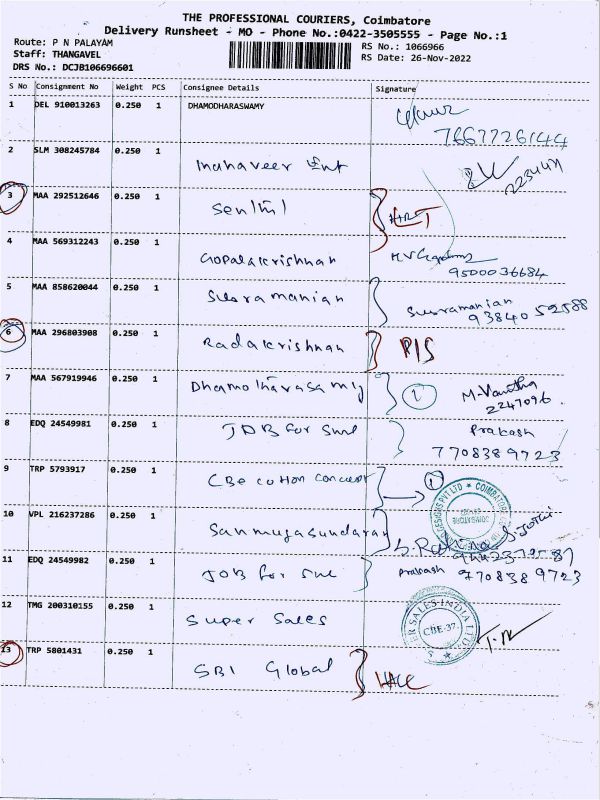 THE PROFESSIONAL COURIERS, Coimbatore
Delivery Runsheet - MO - Phone No.:0422-3505555 - Page No.:1
Route: P N PALAYAM
RS No.: 1066966
Staff: THANGAVEL
RS Date: 26-Nov-2022
DRS No.: DCJB106696601
S No Consignment No Weight PCS Consignee Details Signature
1 DEL 910013263 0.250 1 DHAMODHARASWAMY
7667726144
2 SLM 308245784 0.250 1 Mahaveer Ent
223447
3 MAA 292512646 0.250 1 Senthil
4 MAA 569312243 0.250 1 Gopalakrishnan
9500036684
5 MAA 858620044 0.250 1 Susramanian Susramanian
9384052588
6 MAA 296803908 0.250 1 Radakrishnan PIS
7 MAA 567919946 0.250 1 Dhamotharasamy 1 M-Vanitha
2247096.
8 EDQ 24549981 0.250 1 JOB for sml Prakash
7708389723
9 TRP 5793917 0.250 1 CBe cotton concept 1
10 VPL 216237286 0.250 1 Sanmugasundaran
11 EDQ 24549982 0.250 1 JOB for sml Prakash 7708389723
12 TMG 200310155 0.250 1 Super Sales
SALES INDIA LTD
CBE-37.
13 TRP 5801431 0.250 1 SBI Global